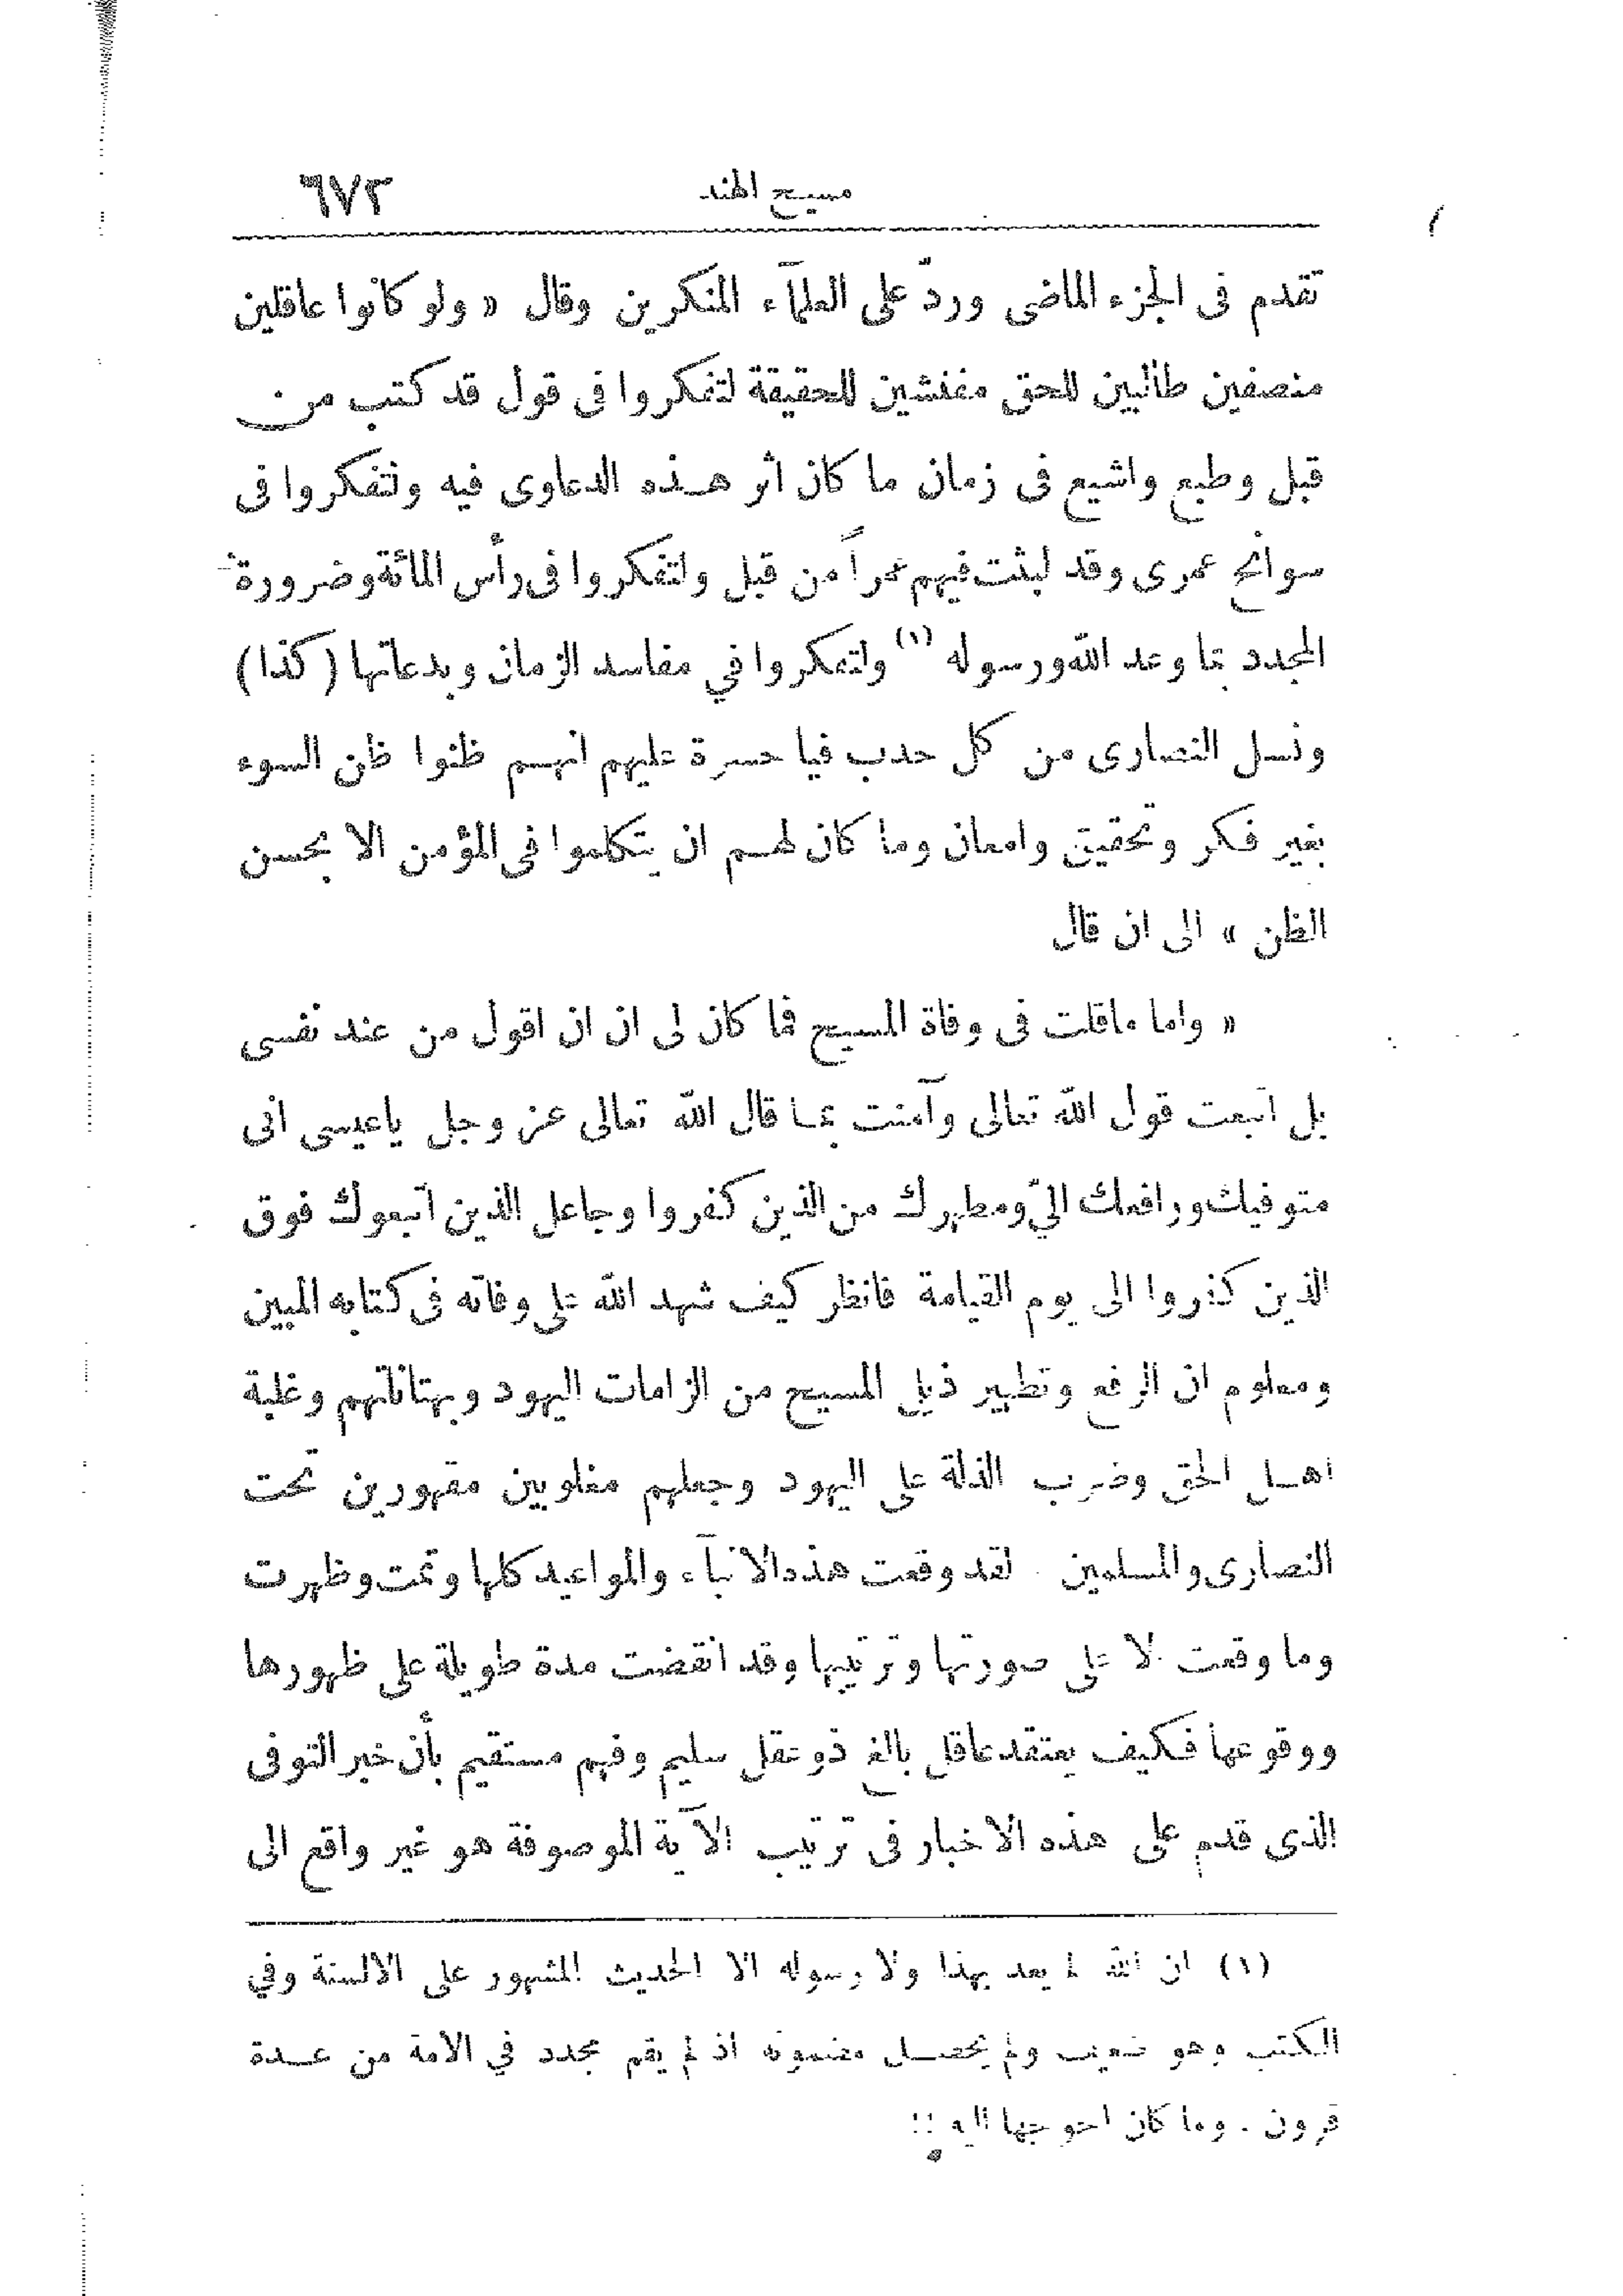 مسيح الهند ٦٧٣
تقدم فى الجزء الماضى وردّ على العلمآء المنكرين وقال « ولو كانوا عاقلين
منصفين طالبين للحق مفتشين للحقيقة لتفكروا فى قول قد كتب من
قبل وطبع واشيع فى زمان ما كان اثر هذه الدعاوى فيه ولتفكروا فى
سوانح عمرى وقد لبثت فيهم عمراً من قبل ولتفكروا فى رأس المائة وضرورة
المجدد بما وعد الله ورسوله (١) ولتفكروا في مفاسد الزمان وبدعاتها (كذا)
ونسل النصارى من كل حدب فيا حسرة عليهم انهم ظنوا ظن السوء
بغير فكر وتحقيق وامعان وما كان لهم ان يتكلموا فى المؤمن الا بحسن
الظن » الى ان قال
« واما ماقلت فى وفاة المسيح فما كان لى ان ان اقول من عند نفسى
بل اتبعت قول الله تعالى وآمنت بما قال الله تعالى عز وجل ياعيسى انى
متوفيك ورافعك اليّ ومطهرك من الذين كفروا وجاعل الذين اتبعوك فوق
الذين كفروا الى يوم القيامة فانظر كيف شهد الله على وفاته فى كتابه المبين
ومعلوم ان الرفع وتطهير ذيل المسيح من الزامات اليهود وبهتاناتهم وغلبة
اهل الحق وضرب الذلة على اليهود وجعلهم مغلوبين مقهورين تحت
النصارى والمسلمين لقد وقعت هذه الانبآء والمواعيد كلها وتمت وظهرت
وما وقعت الا على صورتها وترتيبها وقد انقضت مدة طويلة على ظهورها
ووقوعها فكيف يعتقد عاقل بالغ ذو عقل سليم وفهم مستقيم بأن خبر التوفى
الذى قدم على هذه الاخبار فى ترتيب الآية الموصوفة هو غير واقع الى
(١) ان الله لم يعد بهذا ولا رسوله الا الحديث المشهور على الالسنة وفي
الكتب وهو ضعيف ولم يحصل مضمونه اذ لم يقم مجدد في الامة من عدة
قرون . وما كان احوجها اليه !!